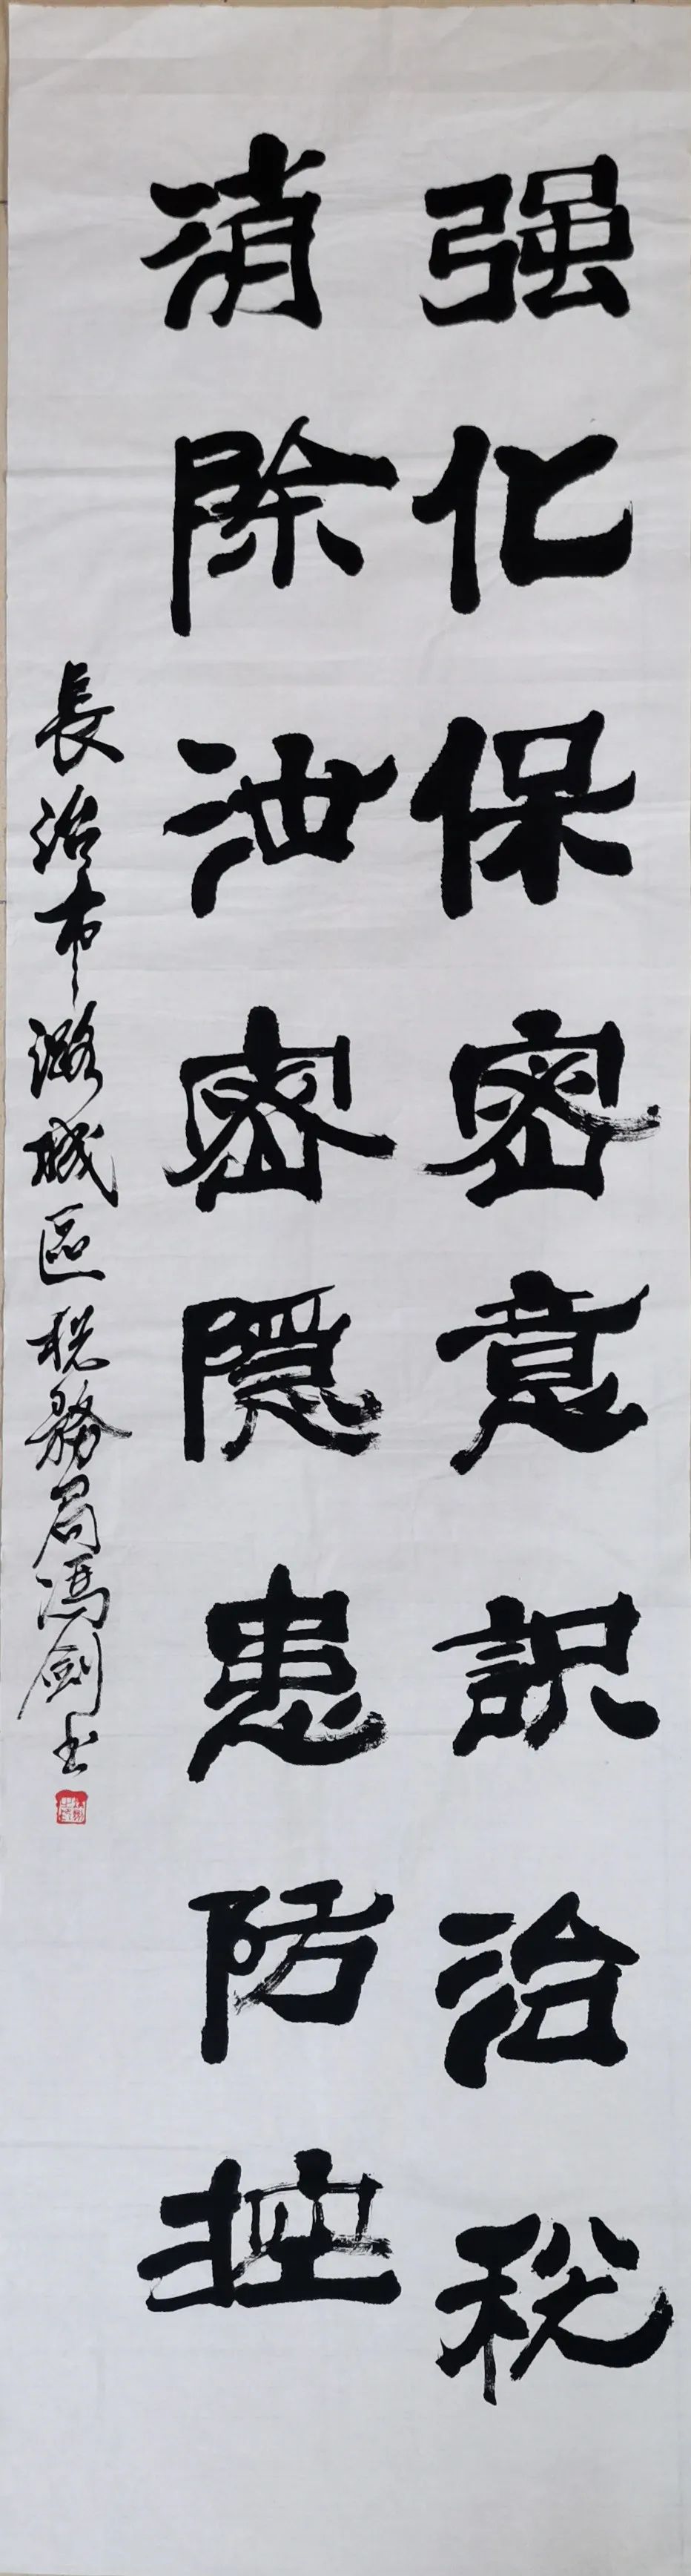 强化保密意識治税
消除泄密隐患防控
長治市潞城區税務局馮劍书